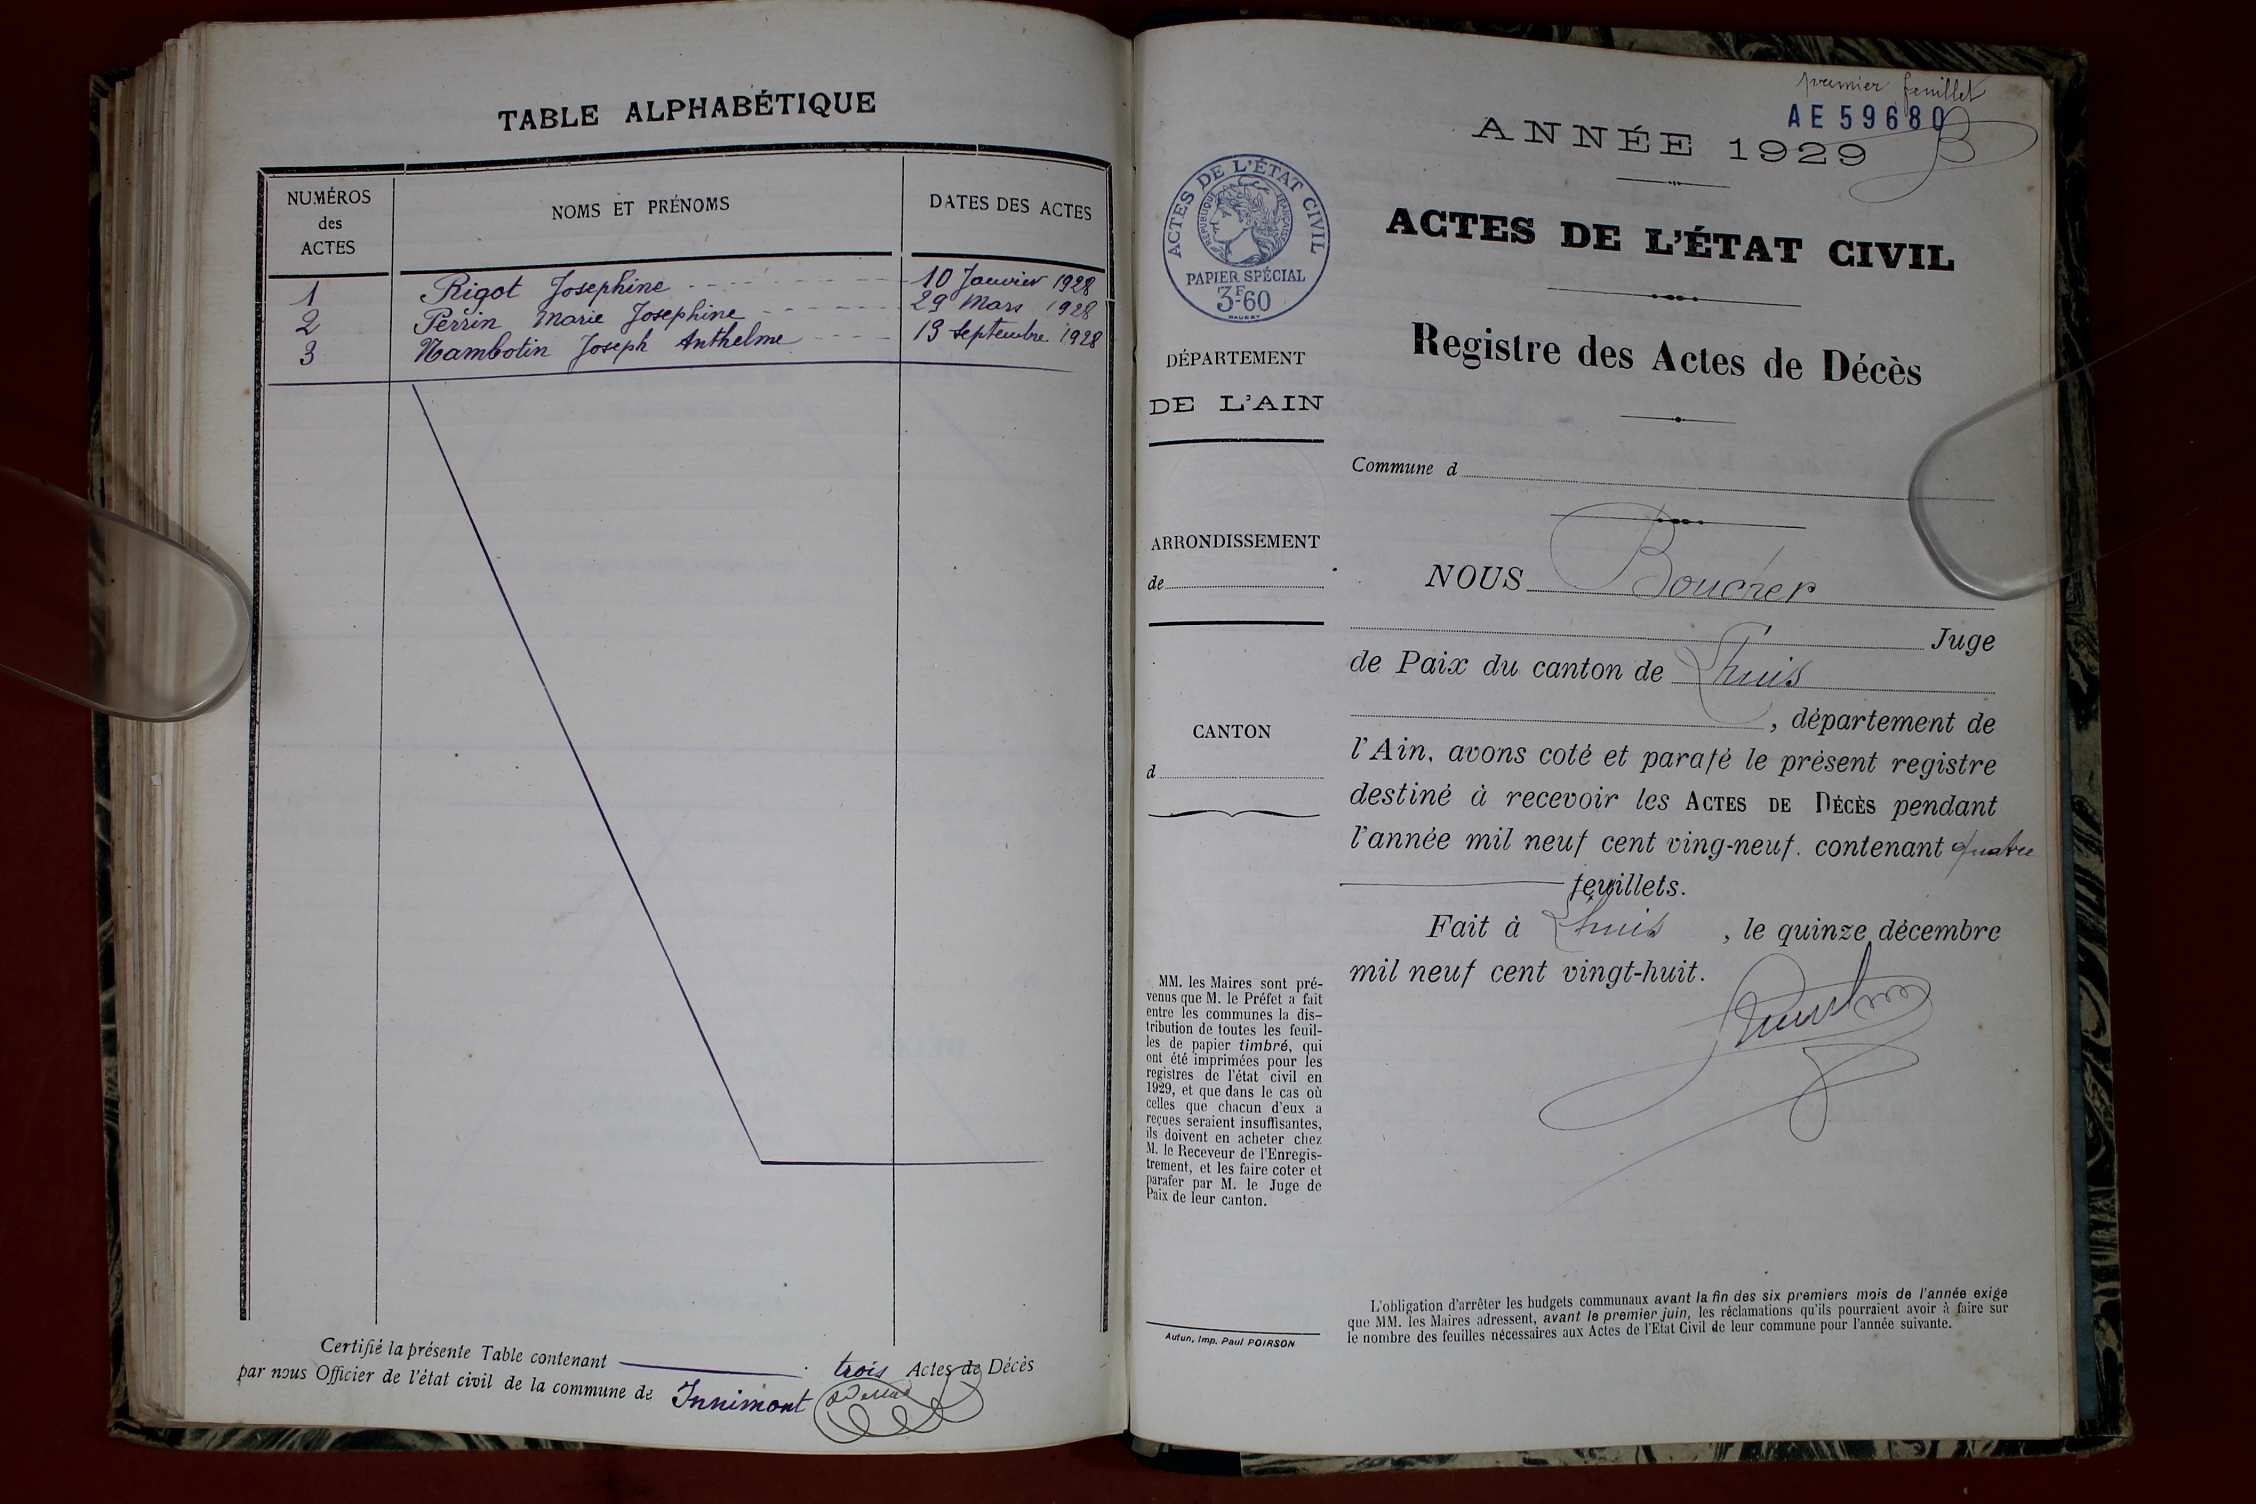 TABLE ALPHABÉTIQUE
NUMÉROS
des
ACTES
NOMS ET PRÉNOMS
DATES DES ACTES
1 Rigot Josephine 10 Janvier 1928
2 Perrin Marie Josephine 29 Mars 1928
3 Nambotin Joseph Anthelme 13 septembre 1928
Certifié la présente Table contenant trois Actes de Décès
par nous Officier de l'état civil de la commune de Innimont
premier feuillet
AE 59680
ANNÉE 1929
ACTES DE L'ÉTAT CIVIL
RÉPUBLIQUE FRANÇAISE
PAPIER SPÉCIAL
3F-60
ACTES DE L'ÉTAT CIVIL
Registre des Actes de Décès
DÉPARTEMENT
DE L'AIN
Commune d
ARRONDISSEMENT
de
NOUS Boucher
Juge
de Paix du canton de Lhuis
CANTON
d
, département de
l'Ain, avons coté et parafé le présent registre
destiné à recevoir les ACTES DE DÉCÈS pendant
l'année mil neuf cent ving-neuf. contenant quatre
feuillets.
Fait à Lhuis , le quinze décembre
mil neuf cent vingt-huit.
MM. les Maires sont pré-
venus que M. le Préfet a fait
entre les communes la dis-
tribution de toutes les feuil-
les de papier timbré, qui
ont été imprimées pour les
registres de l'état civil en
1929, et que dans le cas où
celles que chacun d'eux a
reçues seraient insuffisantes,
ils doivent en acheter chez
M. le Receveur de l'Enregis-
trement, et les faire coter et
parafer par M. le Juge de
Paix de leur canton.
Autun, Imp. Paul POIRSON
L'obligation d'arrêter les budgets communaux avant la fin des six premiers mois de l'année exige
que MM. les Maires adressent, avant le premier juin, les réclamations qu'ils pourraient avoir à faire sur
le nombre des feuilles nécessaires aux Actes de l'Etat Civil de leur commune pour l'année suivante.